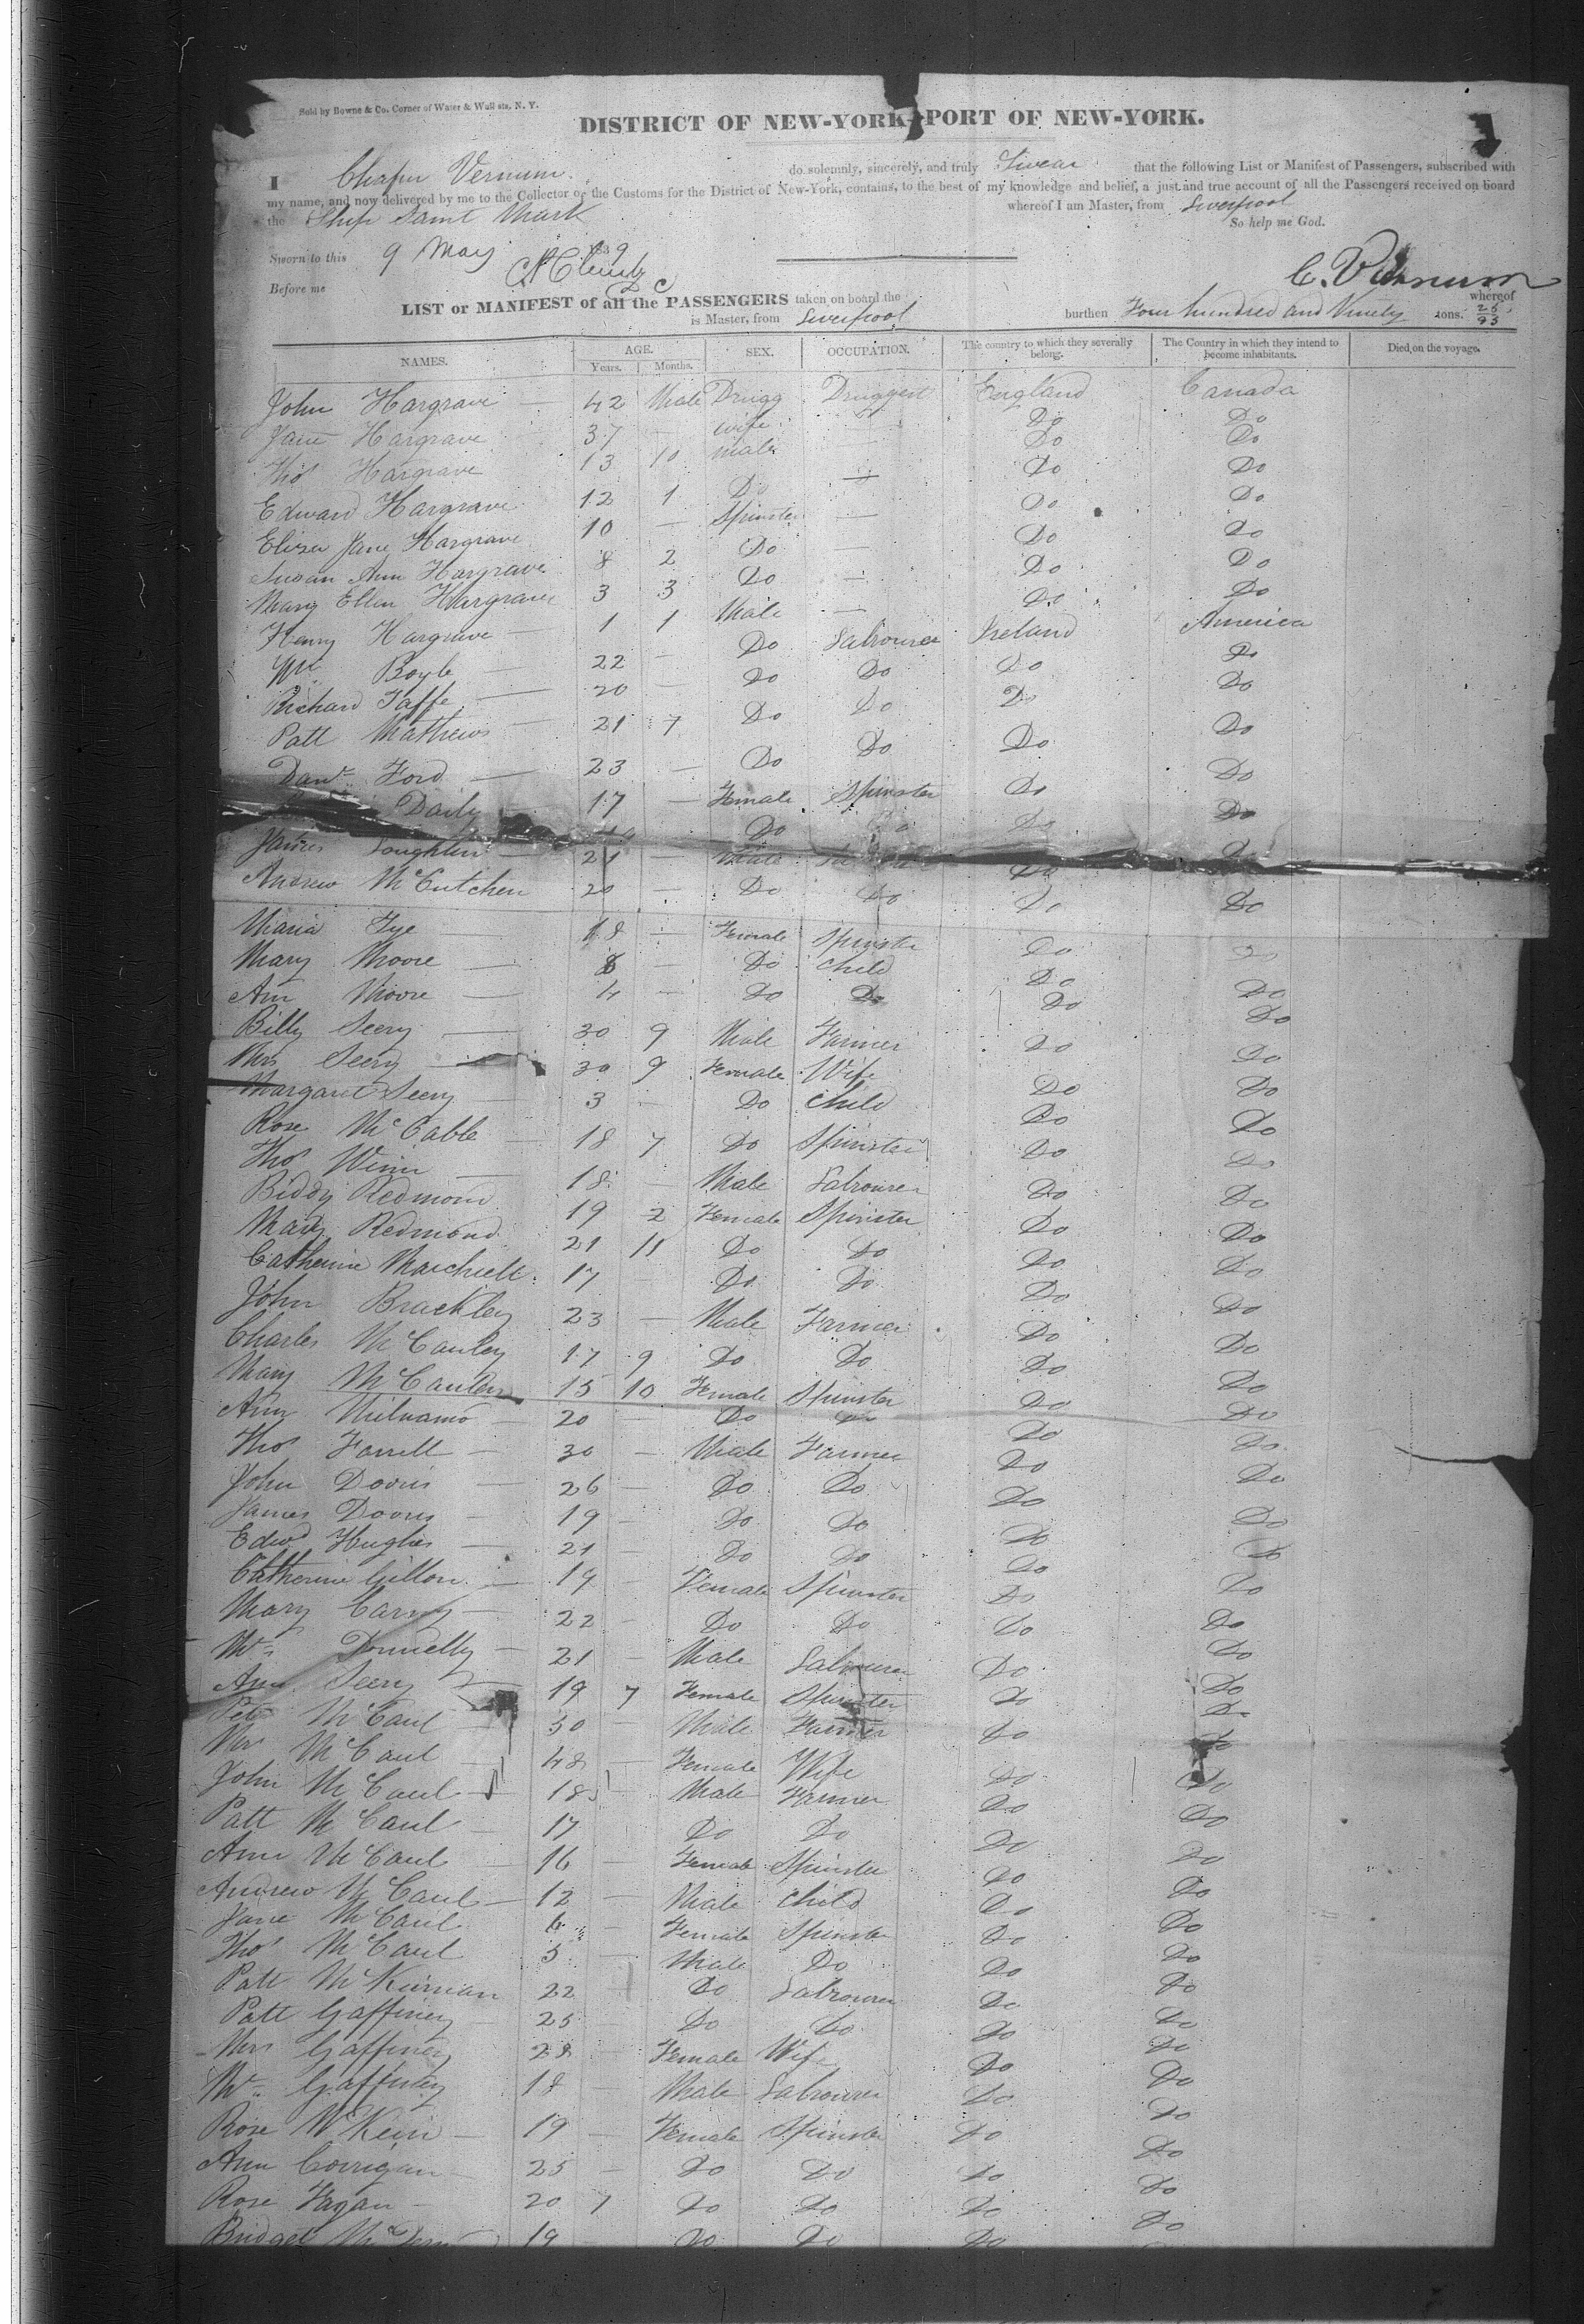 Sold by Bowne & Co. Corner of Water & Wall sts. N. Y.
DISTRICT OF NEW-YORK—PORT OF NEW-YORK.
I Vernum do solemnly, sincerely, and truly Swear that the following List or Manifest of Passengers, subscribed with
my name, and now delivered by me to the Collector of the Customs for the District of New-York, contains, to the best of my knowledge and belief, a just and true account of all the Passengers received on board
the Ship Saint Mark whereof I am Master, from Liverpool
So help me God.
Sworn to this 9 May 1839
Before me
C. Vernum
LIST or MANIFEST of all the PASSENGERS taken on board the whereof
is Master, from Liverpool burthen Four hundred and Ninety tons. 26/95
NAMES. AGE. Years. Months. SEX. OCCUPATION. The country to which they severally belong. The Country in which they intend to become inhabitants. Died on the voyage.
John Hargrave — 42 Male Drugg Druggest England Canada
Jane Hargrave 37 — wife — Do Do
Thos Hargrave 13 10 male — Do Do
Edward Hargrave 12 1 Do — Do Do
Eliza Jane Hargrave 10 — Spinster — Do Do
Susan Ann Hargrave 8 2 Do — Do Do
Mary Ellen Hargrave 3 3 Do — Do Do
Henry Hargrave — 1 1 Male — Do Do
Wm Boyle — 22 — Do Labourer Ireland America
Richard Taffe — 20 — Do Do Do Do
Patt Mathews — 21 7 Do Do Do Do
Danl Ford — 23 — Do Do Do Do
Daily — 17 — Female Spinster Do Do
Do Do Do Do
James Loughlin — 21 — Male Do Do
Andrew McCutchen 20 — Do Do Do Do
Maria Tye — 18 — Female Spinster Do Do
Mary Moore — — Do Child Do Do
Ann Moore — 4 — Do Do Do Do
Billy Seery — 30 9 Male Farmer Do Do
Mrs Seery — 30 9 Female Wife Do Do
Margaret Seery — 3 — Do Child Do Do
Rose McCable — 18 7 Do Spinster Do Do
Thos Winn — 18 — Male Labourer Do Do
Biddy Redmond 19 2 Female Spinster Do Do
Mary Redmond 21 11 Do Do Do Do
Catherine 17 — Do Do Do Do
John Brackley 23 — Male Farmer Do Do
Charles McCauley 17 9 Do Do Do Do
Mary McCauley 15 10 Female Spinster Do Do
Ann — 20 — Do Do Do Do
Thos Farrell — 30 — Male Farmer Do Do
John Dooris — 26 — Do Do Do Do
James Dooris — 19 — Do Do Do Do
Edwd Hughes — 21 — Do Do Do Do
Catherine Gillon — 19 — Female Spinster Do Do
Mary Carny — 22 — Do Do Do Do
Wm Donnelly — 21 — Male Labourer Do Do
Ann Seery — 19 7 Female Spinster Do Do
Pet McCaul — 50 — Male Farmer Do Do
Mrs McCaul — 48 — Female Wife Do Do
John McCaul — 18 — Male Farmer Do Do
Patt McCaul — 17 Do Do Do Do
Ann McCaul — 16 — Female Spinster Do Do
Andrew McCaul — 12 — Male Child Do Do
Jane McCaul 6 — Female Spinster Do Do
Thos McCaul 5 — Male Do Do Do
Patt McKiernan 22 — Do Labourer Do Do
Patt Gaffney — 25 — Do Do Do Do
Mrs Gaffney 28 — Female Wife Do Do
Wm Gaffney 18 — Male Labourer Do Do
Rose — 19 — Female Spinster Do Do
Ann Corrigan — 25 — Do Do Do Do
Rose Fagan — 20 7 Do Do Do Do
Bridget 19 — Do Do Do